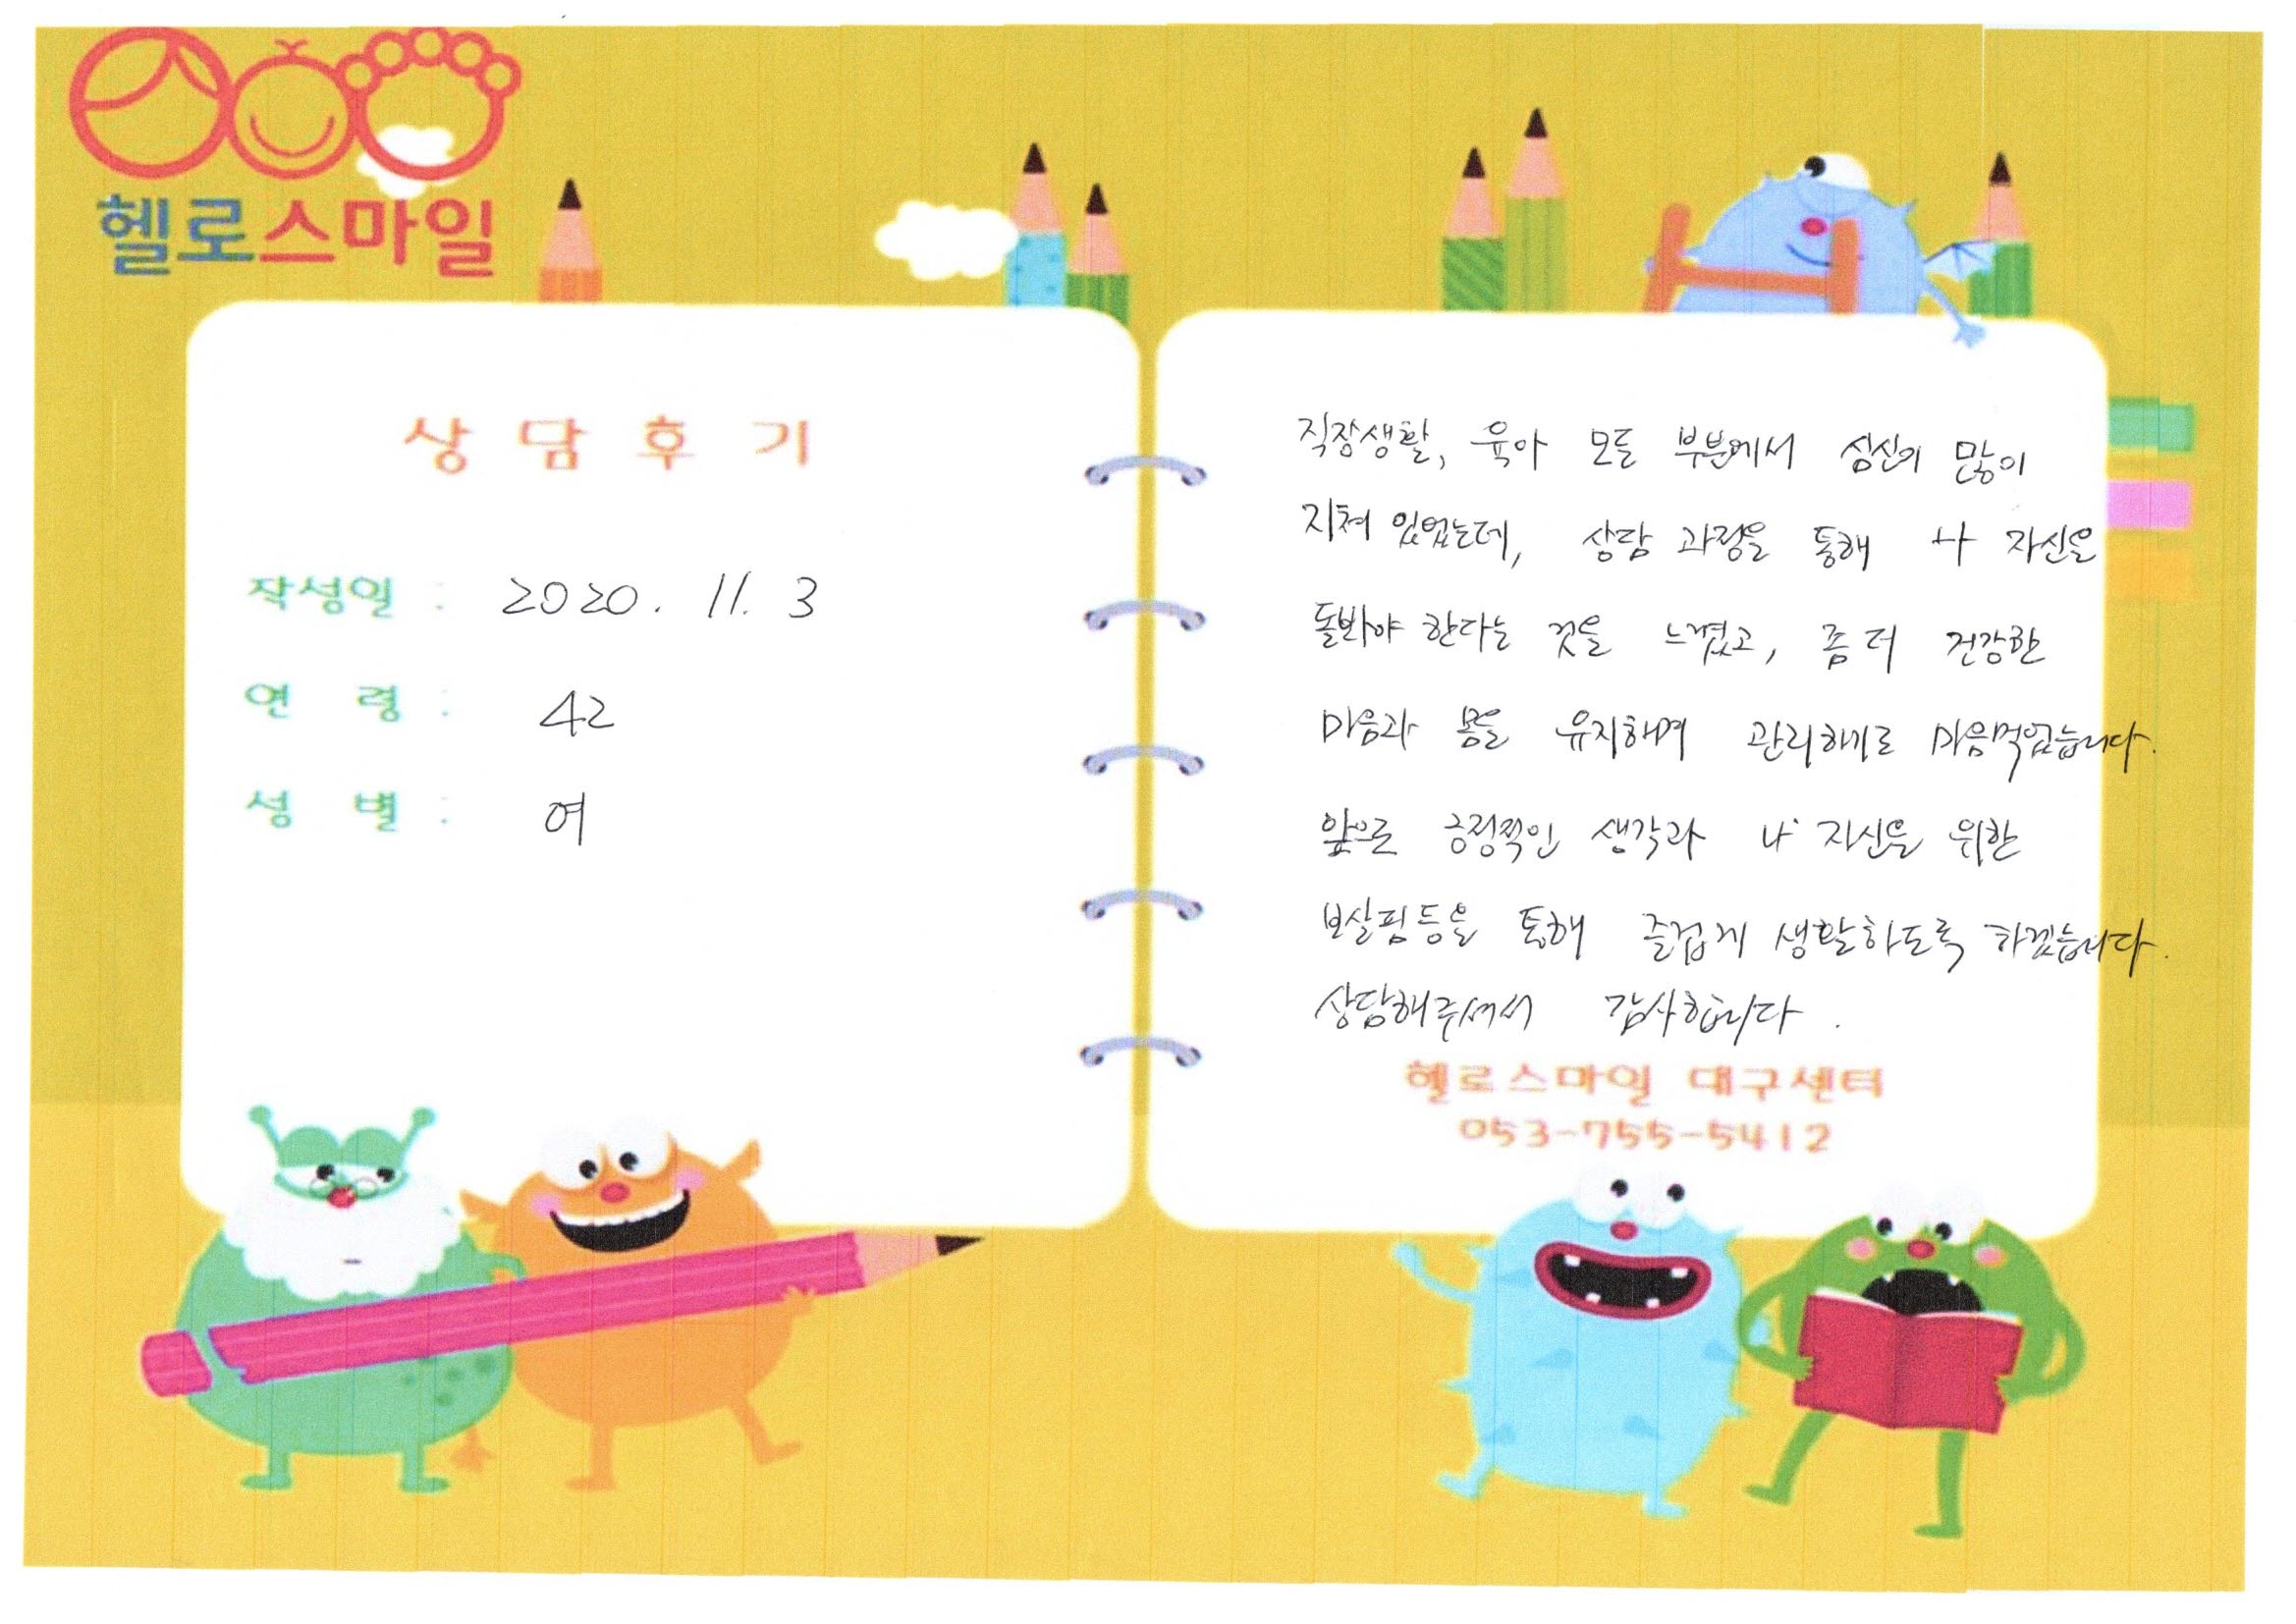 헬로스마일
상담후기
작성일 : 2020. 11. 3
연 령 : 42
성 별 : 여
직장생활, 육아 모든 부분에서 심신이 많이
지쳐 있었는데, 상담 과정을 통해 나 자신을
돌봐야 한다는 것을 느꼈고, 좀 더 건강한
마음과 몸을 유지하며 관리하기로 마음먹었습니다.
앞으로 긍정적인 생각과 나 자신을 위한
보살핌 등을 통해 즐겁게 생활하도록 하겠습니다.
상담해주셔서 감사합니다.
헬로스마일 대구센터
053-755-5412